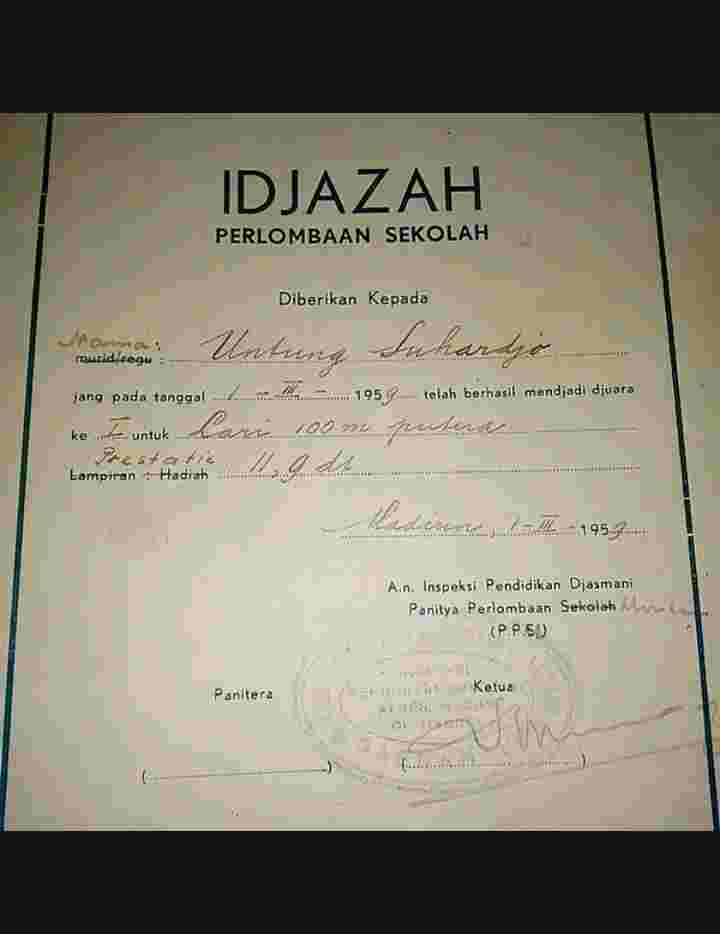 IDJAZAH
PERLOMBAAN SEKOLAH
Diberikan Kepada
Nama:
murid/regu : Untung Suhardjo
jang pada tanggal 1 - III - 1959 telah berhasil mendjadi djuara
ke I untuk Lari 100 m putera
Prestatie
Lampiran : Hadiah 11,9 dt
Madiun, 1 - III - 1959
A.n. Inspeksi Pendidikan Djasmani
Panitya Perlombaan Sekolah
(P.P.S.)
Panitera Ketua